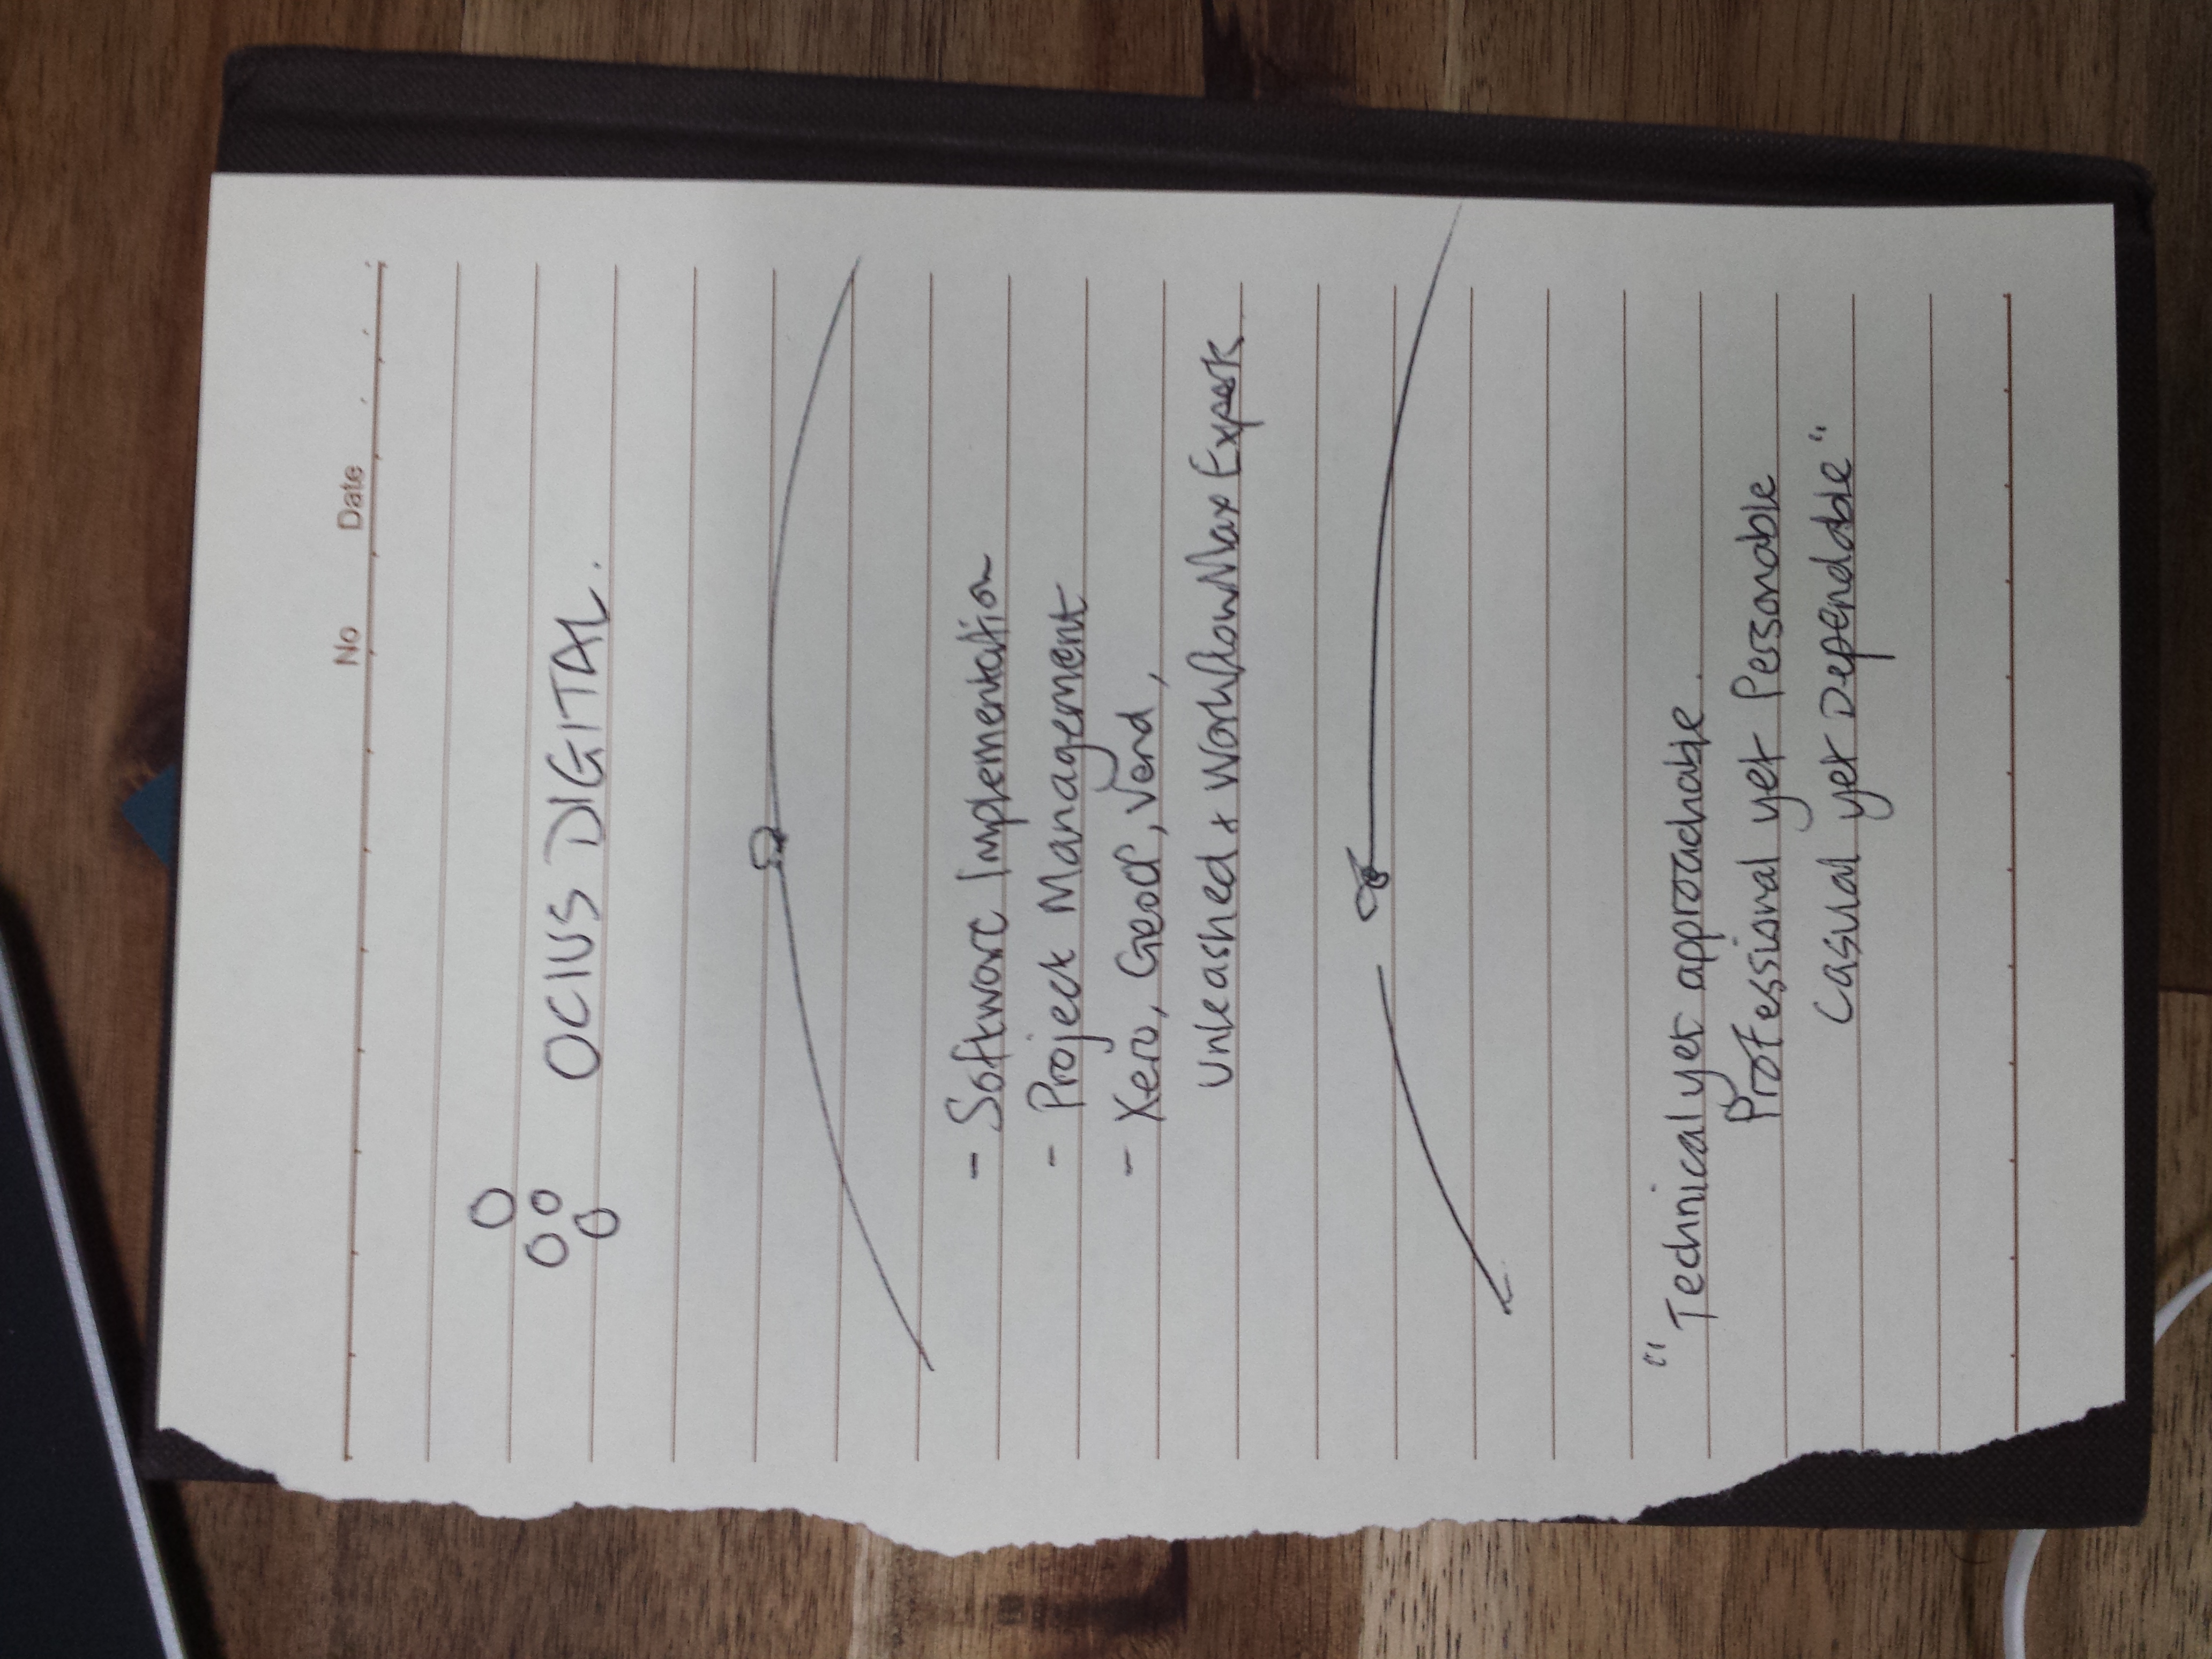 No Date
OCIUS DIGITAL.
- Software Implementation
- Project Management
- Xero, GeoOP, Vend,
Unleashed + WorkflowMax Experts
"Technical yet approachable.
Professional yet Personable
Casual yet Dependable"